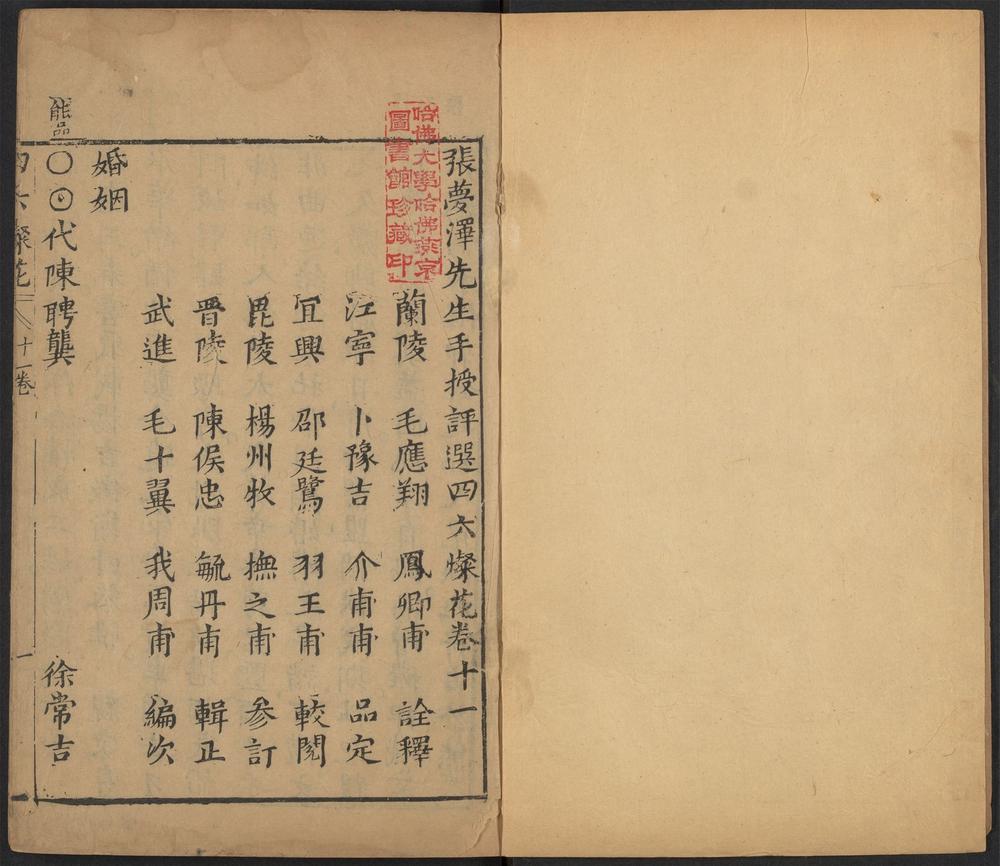 張夢澤先生手授評選四六燦花卷十一
蘭陵 毛應翔 鳳卿甫 詮釋
江寧 卜豫吉 介甫甫 品定
宜興 邵廷鷺 羽王甫 較閱
毘陵 楊州牧 撫之甫 參訂
晉陵 陳俟忠 毓丹甫 輯正
武進 毛十翼 我周甫 編次
婚姻
能品
〇⊙代陳聘龔 徐常吉
四六燦花 十一卷 一
哈佛大學哈佛燕京
圖書館珍藏印